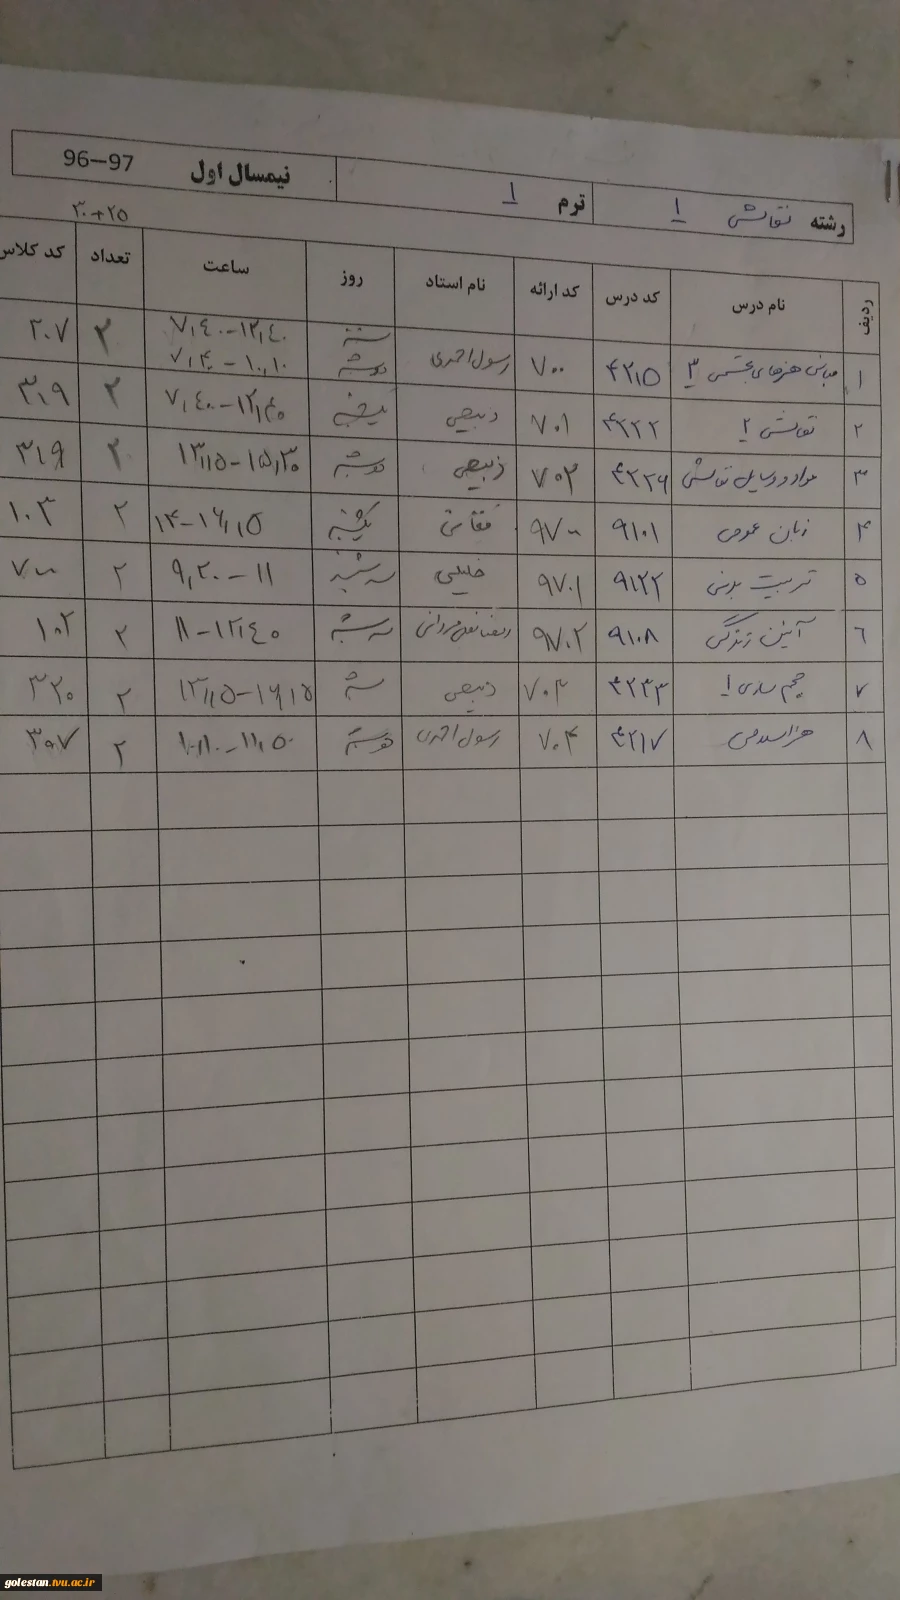 رشته نقاشی ۱ ترم ۱ نیمسال اول 96-97
۳۰+۲۵
ردیف نام درس کد درس کد ارائه نام استاد روز ساعت تعداد کد کلاس
۱ مبانی هنرهای تجسمی ۳ ۴۲۱۵ ۷۰۰ رسول احمدی شنبه ۷,۴۰-۱۲,۴۰ ۳ ۲۰۷
دوشنبه ۷,۴۰-۱۰,۱۰
۲ نقاشی ۲ ۴۲۲۲ ۷۰۱ ذبیحی ۷,۴۰-۱۲,۴۰ ۳ ۳۱۹
۳ مواد و وسایل نقاشی ۴۲۲۶ ۷۰۲ ذبیحی دوشنبه ۱۳,۱۵-۱۵,۳۰ ۲ ۳۱۹
۴ زبان عمومی ۹۱۰۱ ۹۷۰۰ یکشنبه ۱۴-۱۶,۱۵ ۲ ۱۰۳
۵ تربیت بدنی ۹۱۲۲ ۹۷۰۱ خلیلی سه شنبه ۹,۲۰-۱۱ ۲ ۷۰۰
۶ آئین زندگی ۹۱۰۸ ۹۷۰۲ سه شنبه ۱۱-۱۲,۴۰ ۲ ۱۰۲
۷ حجم سازی ۱ ۴۲۳۳ ۷۰۳ ذبیحی شنبه ۱۳,۱۵-۱۶,۱۵ ۲ ۳۲۰
۸ هنر اسلامی ۴۲۱۷ ۷۰۴ رسول احمدی دوشنبه ۱۰,۱۰-۱۱,۵۰ ۲ ۳۰۷
golestan.tvu.ac.ir